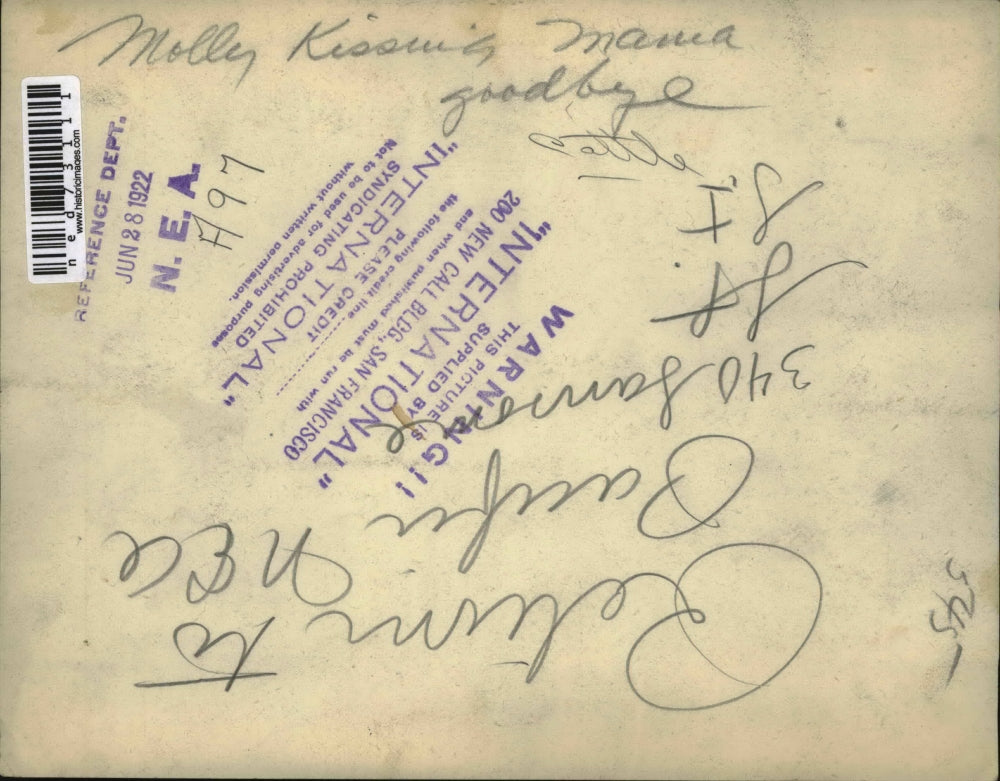 Molly Kissing Mama
goodbye
www.historicimages.com
ned73111
REFERENCE DEPT.
JUN 28 1922
N. E. A.
A797
WARNING!!
THIS PICTURE IS
SUPPLIED BY
"INTERNATIONAL"
200 NEW CALL BLDG., SAN FRANCISCO
and when published must be run with
the following credit line
PLEASE CREDIT
"INTERNATIONAL"
SYNDICATING PROHIBITED
Not to be used for advertising purposes
without written permission.
Return to
Pacific NEA
340 Sansome
St.
S.F.
545